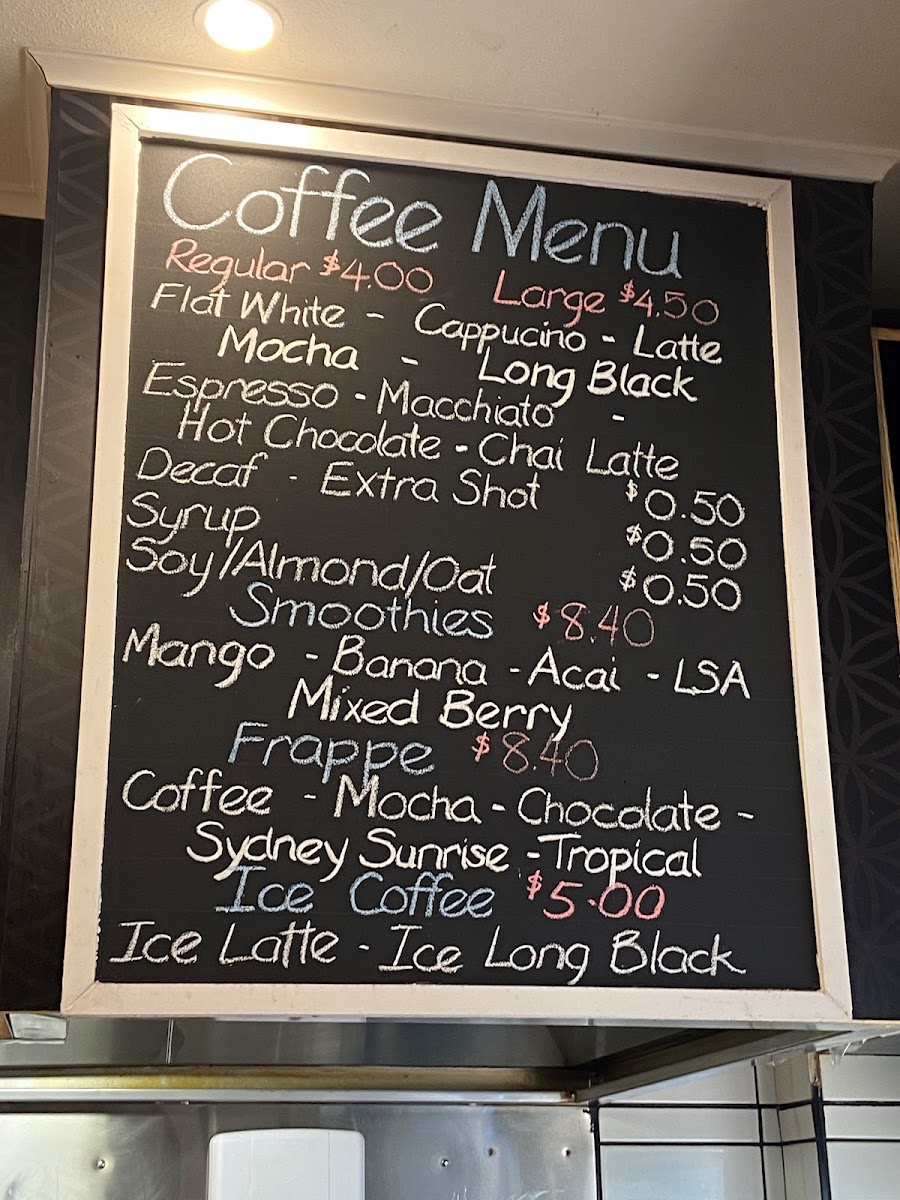 Coffee Menu
Regular $4.00 Large $4.50
Flat White - Cappucino - Latte
Mocha - Long Black
Espresso - Macchiato -
Hot Chocolate - Chai Latte
Decaf - Extra Shot $0.50
Syrup $0.50
Soy/Almond/Oat $0.50
Smoothies $8.40
Mango - Banana - Acai - LSA
Mixed Berry
Frappe $8.40
Coffee - Mocha - Chocolate -
Sydney Sunrise - Tropical
Ice Coffee $5.00
Ice Latte - Ice Long Black